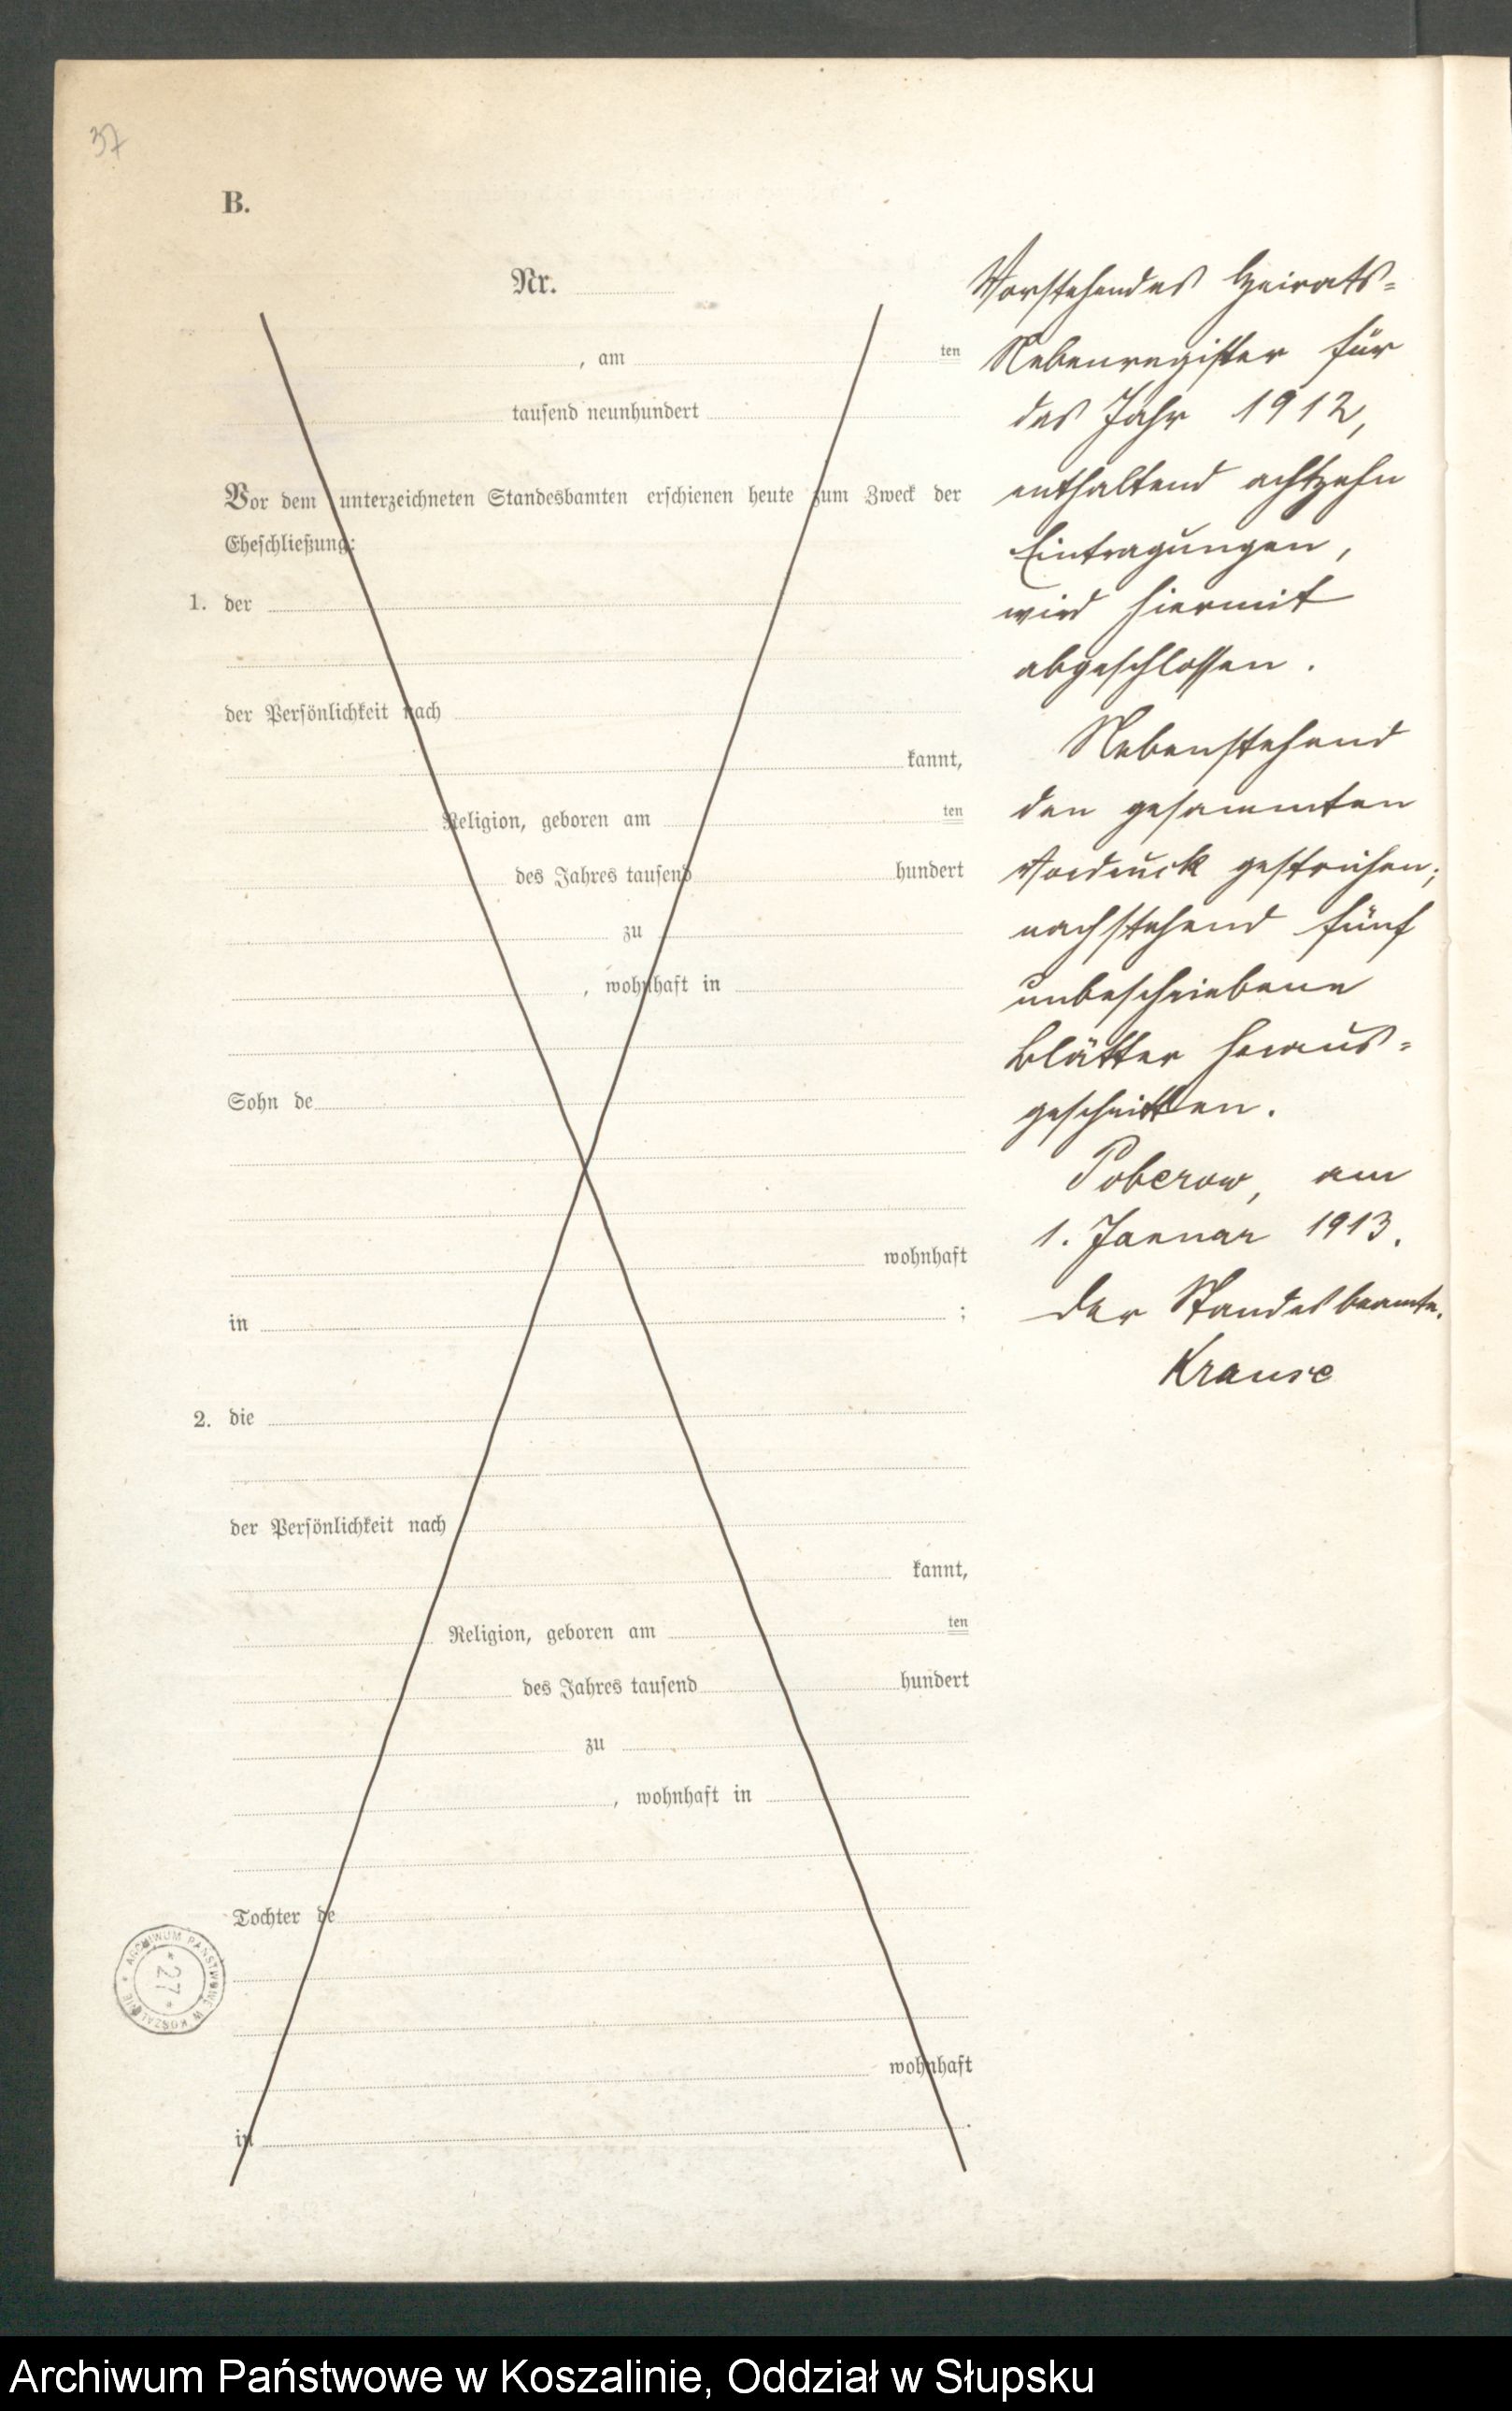 37
B.
Nr.
, am ten
tausend neunhundert
Vor dem unterzeichneten Standesbamten erschienen heute zum Zweck der
Eheschließung:
1. der
der Persönlichkeit nach
kannt,
Religion, geboren am ten
des Jahres tausend hundert
zu
, wohnhaft in
Sohn de
wohnhaft
in ;
2. die
der Persönlichkeit nach
kannt,
Religion, geboren am ten
des Jahres tausend hundert
zu
, wohnhaft in
Tochter de
wohnhaft
in .
Vorstehendes Heirats-
Nebenregister für
das Jahr 1912,
enthaltend achtzehn
Eintragungen,
wird hiermit
abgeschlossen.
Nebenstehend
den gesammten
Vordruck gestrichen;
nachstehend fünf
unbeschriebene
Blätter heraus-
geschnitten.
Poberow, am
1. Januar 1913.
Der Standesbeamte.
Krause
ARCHIWUM PAŃSTWOWE W KOSZALINIE
* 27 *
Archiwum Państwowe w Koszalinie, Oddział w Słupsku